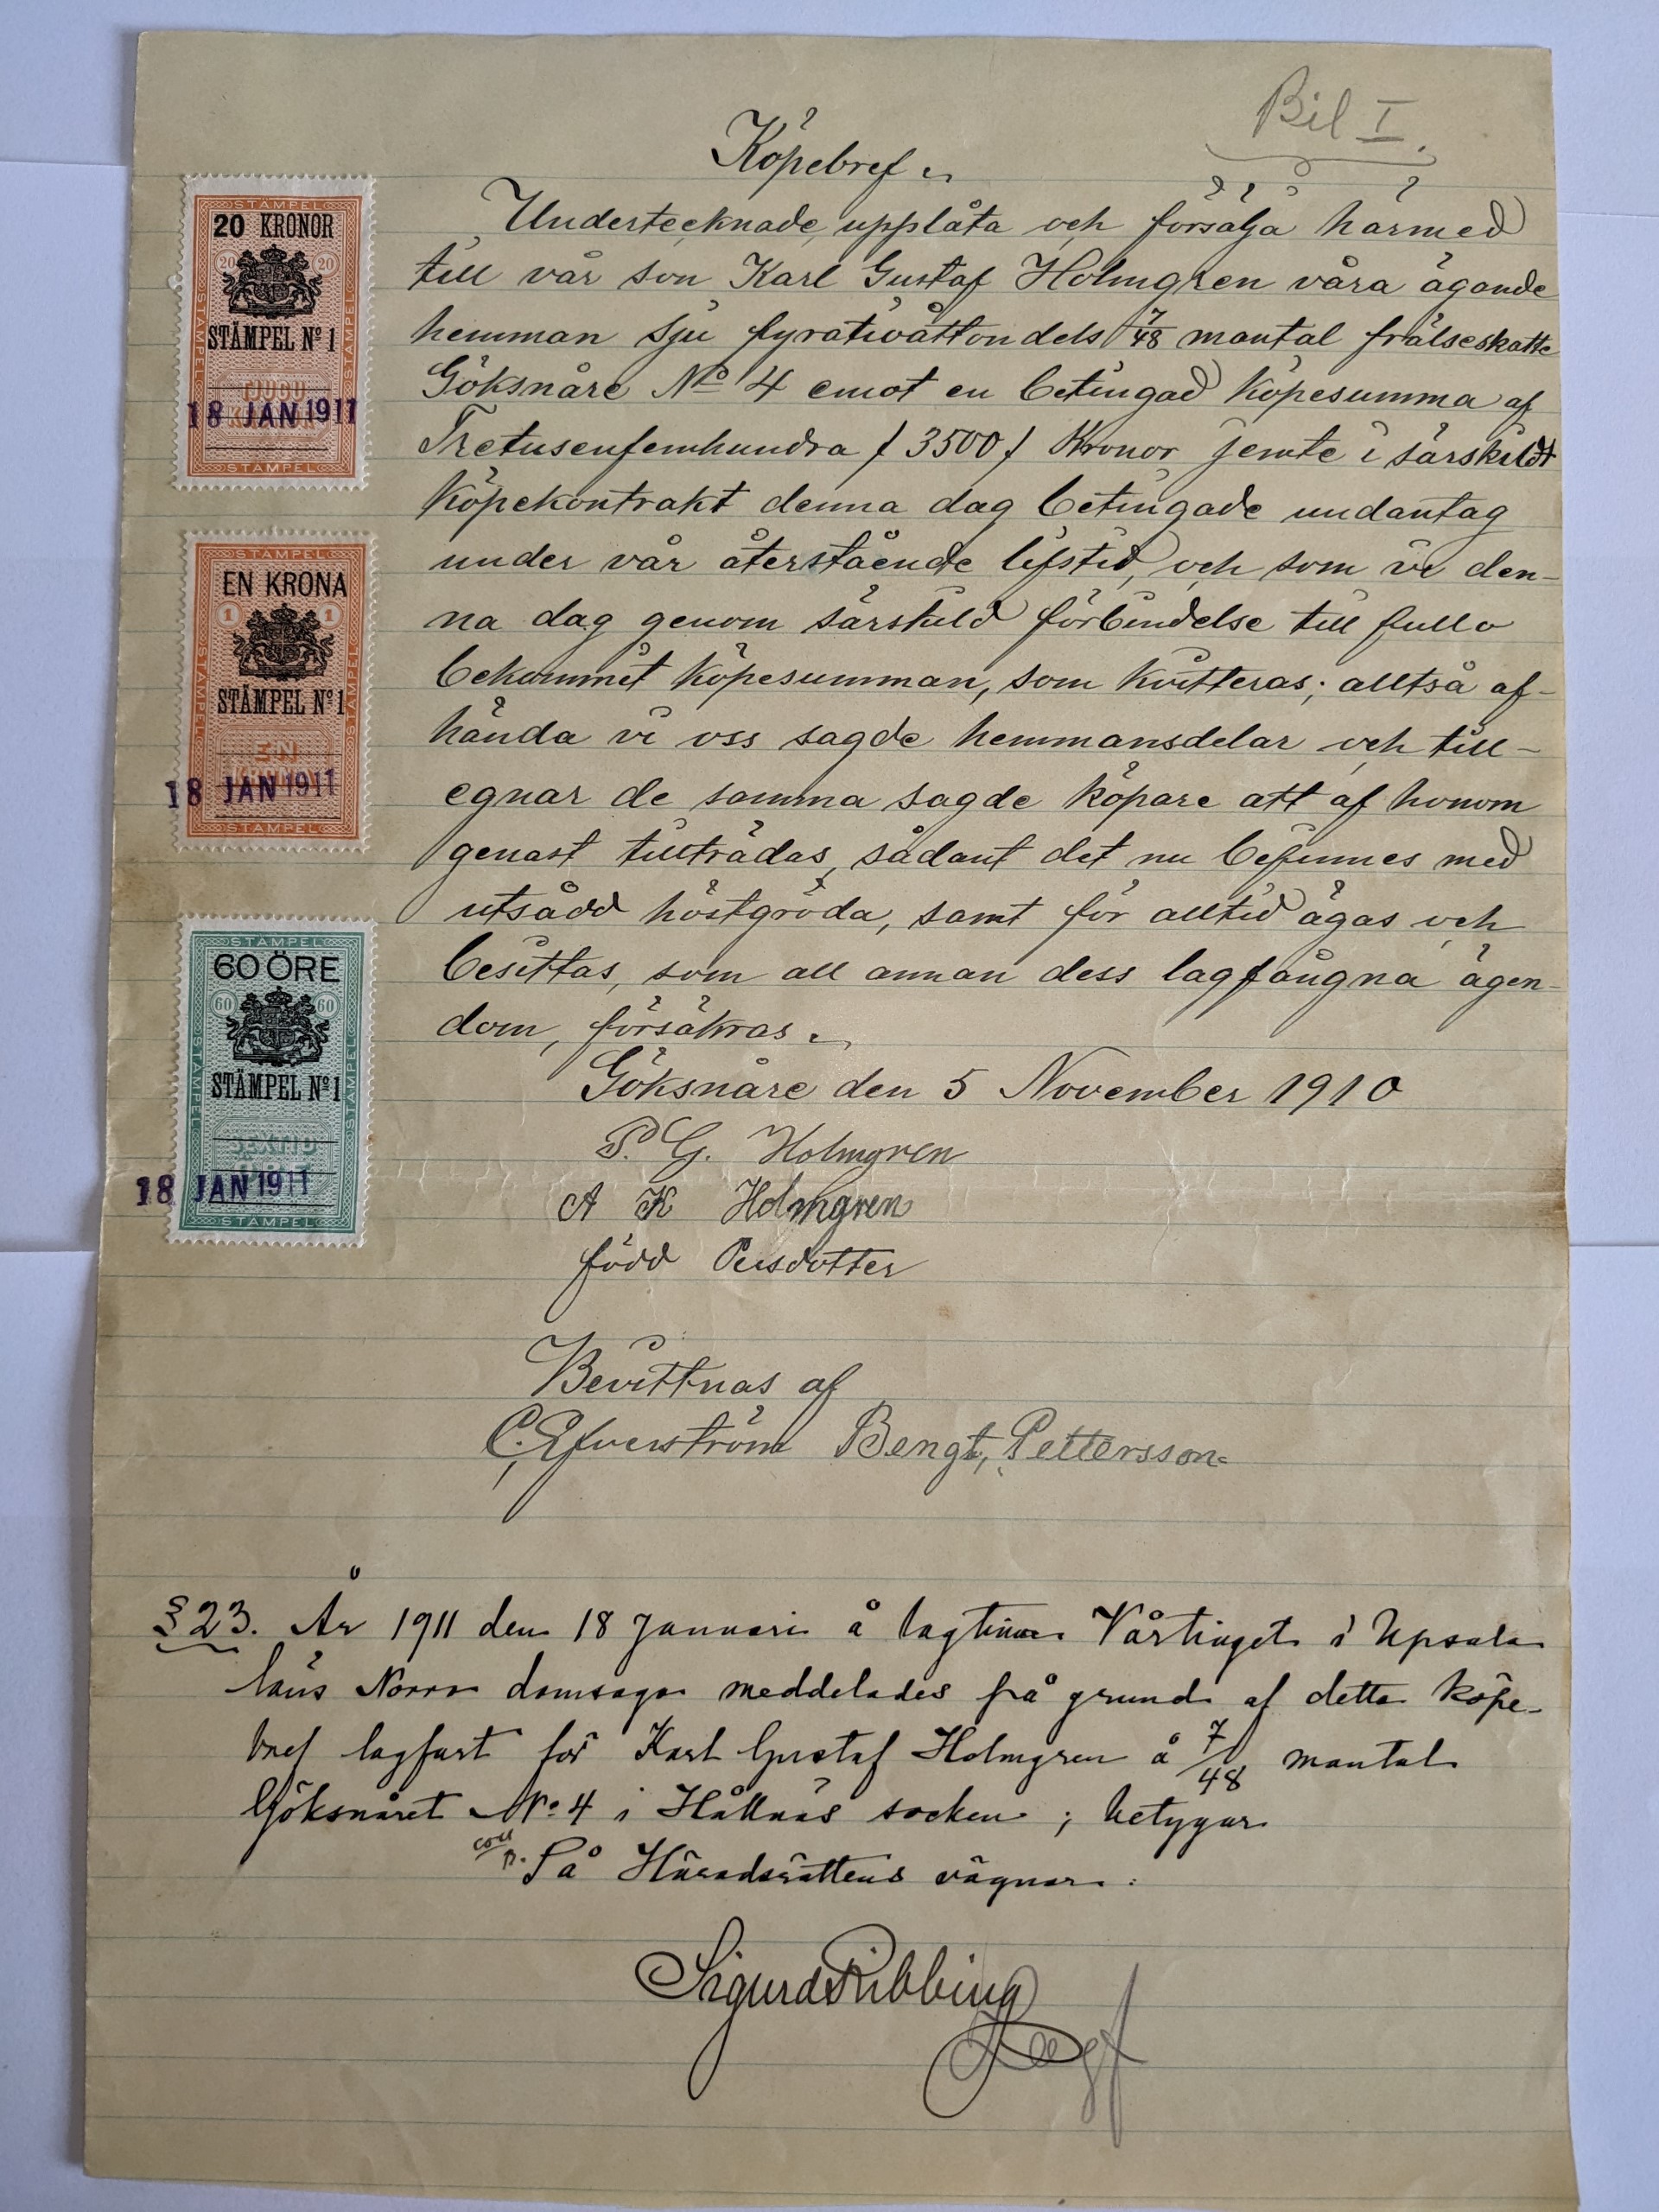 Bil I.
Köpebref.
Undertecknade upplåta och försälja härmed
till vår son Karl Gustaf Holmgren våra ägande
hemman sju fyratioåttondels 7/48 mantal frälseskatte
Göksnåre No 4 emot en betingad köpesumma af
Tretusenfemhundra / 3500 / Kronor jemte i särskildt
köpekontrakt denna dag betingade undantag
under vår återstående lifstid, och som vi den-
na dag genom särskild förbindelse till fullo
bekommit köpesumman, som kvitteras; alltså af-
hända vi oss sagde hemmansdelar och till-
egnar de samma sagde köpare att af honom
genast tillträdas, sådant det nu befinnes med
utsådd höstgröda, samt för alltid ägas och
besittas, som all annan dess lagfångna ägen-
dom, försäkras.
Göksnåre den 5 November 1910
P. G. Holmgren
A K Holmgren
född Persdotter
Bevittnas af
C. Efverström Bengt, Pettersson
§ 23. År 1911 den 18 Januari å lagtima Vårtinget i Upsala
läns Norra domsaga meddelades på grund af detta köpe-
bref lagfart för Karl Gustaf Holmgren å 7/48 mantal
Göksnåret No 4 i Hållnäs socken; betygar
coll
På Häradsrättens vägnar:
Sigurd Ribbing
Lagf
STÄMPEL
20 KRONOR
20 20
STÄMPEL No 1
TJUGU
KRONOR
18 JAN 1911
STÄMPEL
STÄMPEL
EN KRONA
1 1
STÄMPEL No 1
EN
KRONA
18 JAN 1911
STÄMPEL
STÄMPEL
60 ÖRE
60 60
STÄMPEL No 1
SEXTIO
ÖRE
18 JAN 1911
STÄMPEL